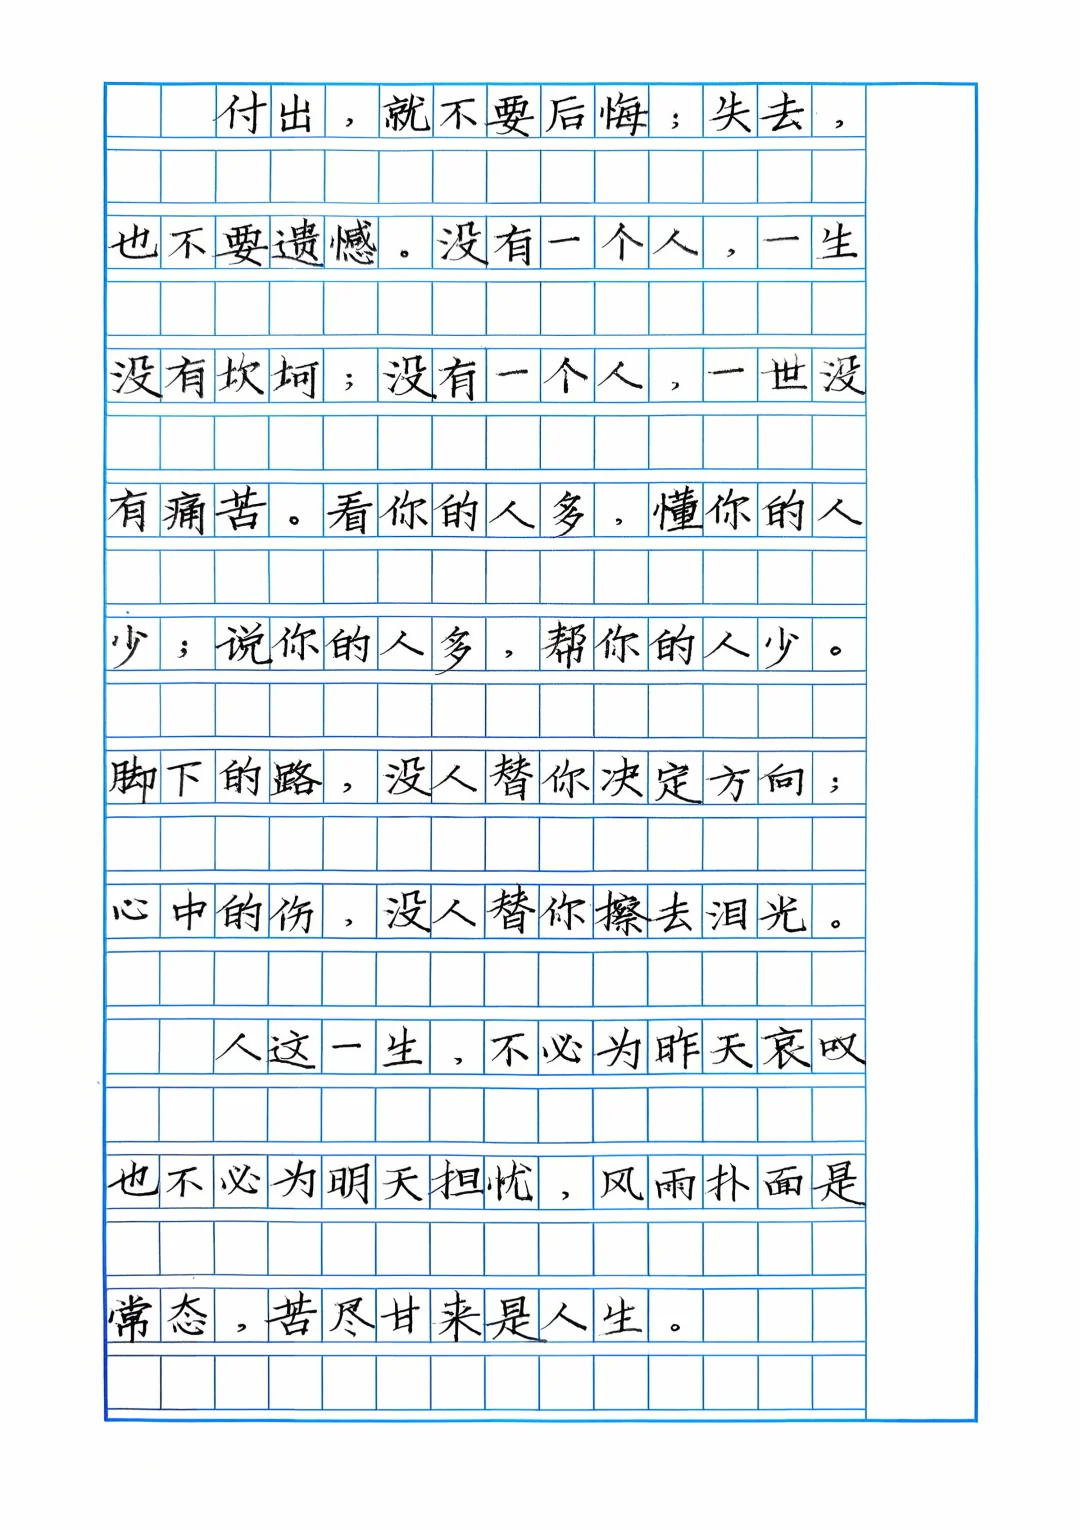 付出，就不要后悔；失去，
也不要遗憾。没有一个人，一生
没有坎坷；没有一个人，一世没
有痛苦。看你的人多，懂你的人
少；说你的人多，帮你的人少。
脚下的路，没人替你决定方向；
心中的伤，没人替你擦去泪光。
人这一生，不必为昨天哀叹
也不必为明天担忧，风雨扑面是
常态，苦尽甘来是人生。